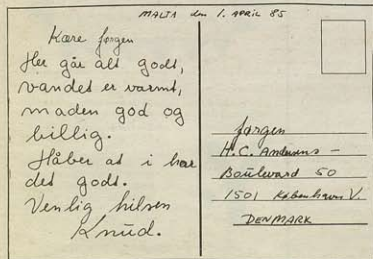 MALTA den 1. APRIL 85
Kære Jørgen
Her går alt godt,
vandet er varmt,
maden god og
billig.
Håber at i har
det godt.
Venlig hilsen
Knud.
Jørgen
H.C. Andersens -
Boulevard 50
1501 København V.
DENMARK